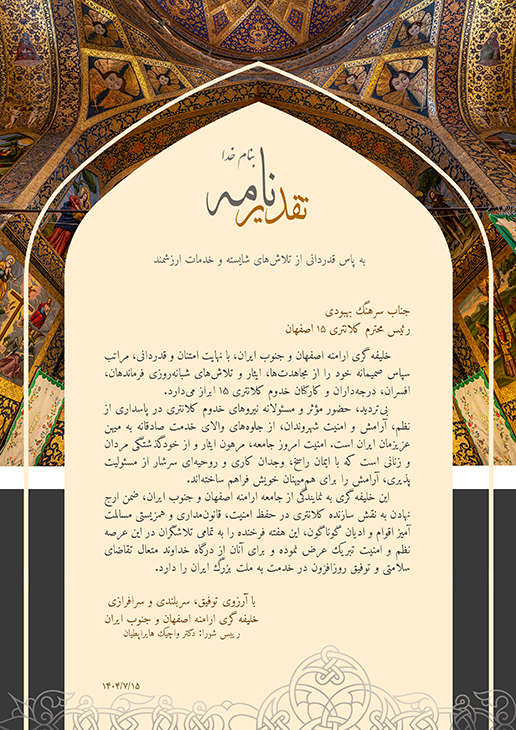 بنام خدا
تقدیرنامه
به پاس قدردانی از تلاش‌های شایسته و خدمات ارزشمند
جناب سرهنگ بهبودی
رئیس محترم کلانتری ۱۵ اصفهان
خلیفه‌گری ارامنه اصفهان و جنوب ایران، با نهایت امتنان و قدردانی، مراتب
سپاس صمیمانه خود را از مجاهدت‌ها، ایثار و تلاش‌های شبانه‌روزی فرماندهان،
افسران، درجه‌داران و کارکنان خدوم کلانتری ۱۵ ابراز می‌دارد.
بی‌تردید، حضور مؤثر و مسئولانه نیروهای خدوم کلانتری در پاسداری از
نظم، آرامش و امنیت شهروندان، از جلوه‌های والای خدمت صادقانه به میهن
عزیزمان ایران است. امنیت امروز جامعه، مرهون ایثار و از خودگذشتگی مردان
و زنانی است که با ایمان راسخ، وجدان کاری و روحیه‌ای سرشار از مسئولیت
پذیری، آرامش را برای هم‌میهنان خویش فراهم ساخته‌اند.
این خلیفه‌گری به نمایندگی از جامعه ارامنه اصفهان و جنوب ایران، ضمن ارج
نهادن به نقش سازنده کلانتری در حفظ امنیت، قانون‌مداری و همزیستی مسالمت
آمیز اقوام و ادیان گوناگون، این هفته فرخنده را به تمامی تلاشگران در این عرصه
نظم و امنیت تبریک عرض نموده و برای آنان از درگاه خداوند متعال تقاضای
سلامتی و توفیق روزافزون در خدمت به ملت بزرگ ایران را دارد.
با آرزوی توفیق، سربلندی و سرافرازی
خلیفه‌گری ارامنه اصفهان و جنوب ایران
رییس شورا: دکتر واچیک هایراپطیان
۱۴۰۴/۷/۱۵